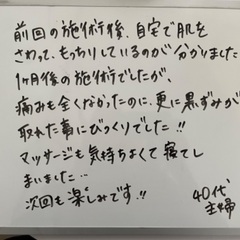 前回の施術後、自宅で肌を
さわって、もっちりしているのが分かりました
1ヶ月後の施術でしたが、
痛みも全くなかったのに、更に黒ずみが
取れた事にびっくりでした!!
マッサージも気持ちよくて寝てし
まいました…
次回も楽しみです!!
40代
主婦